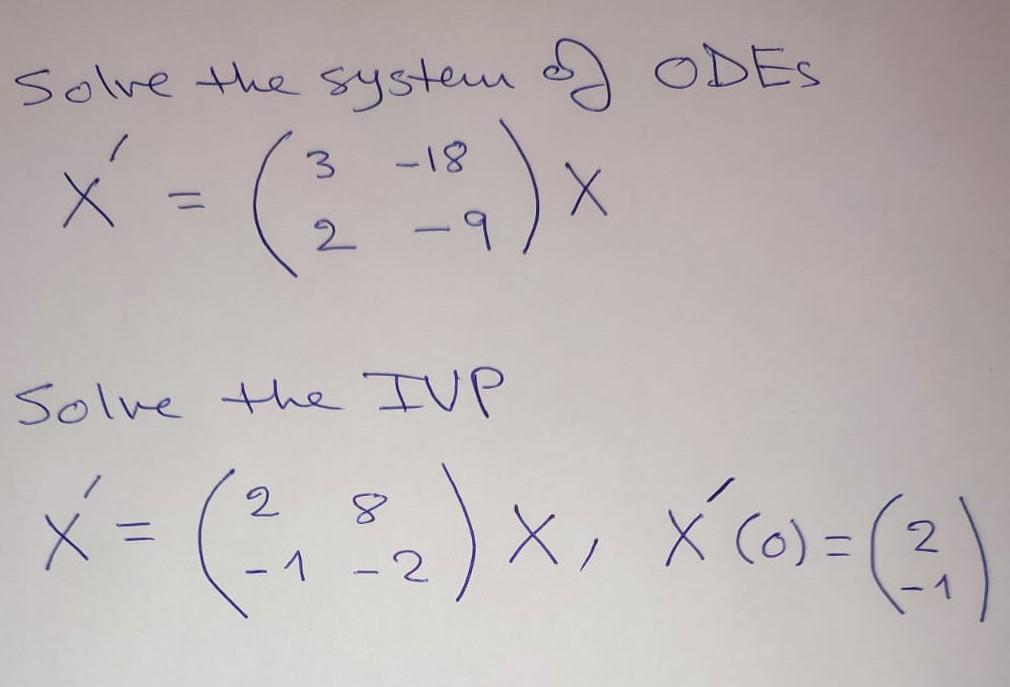 Solve the system of ODEs
X' = ( 3 -18
2 -9 ) X
Solve the IVP
X' = ( 2 8
-1 -2 ) X, X'(0) = ( 2
-1 )